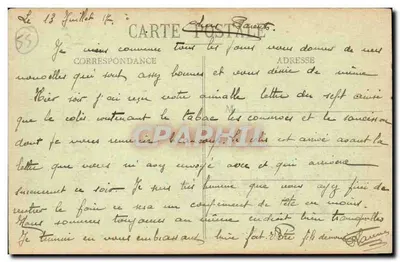 Le 13 Juillet
CARTE POSTALE
Je viens comme tous les jours vous donner de mes
CORRESPONDANCE ADRESSE
nouvelles qui sont assy bonnes et vous désire de même
Hier soir j'ai reçu votre aimable lettre du sept ainsi
que le colis contenant le tabac les conserves et le saucisson
dont je vous remercie colis est arrivé avant la
lettre que vous m'avy envoyé avec et qui arrivera
surement ce soir Je suis très que vous ayy fini de
rentrer le foin ce sera un de tête en moins.
Nous sommes toujours au même endroit bien tranquilles
Je termine en vous embrassant bien fort Votre fils